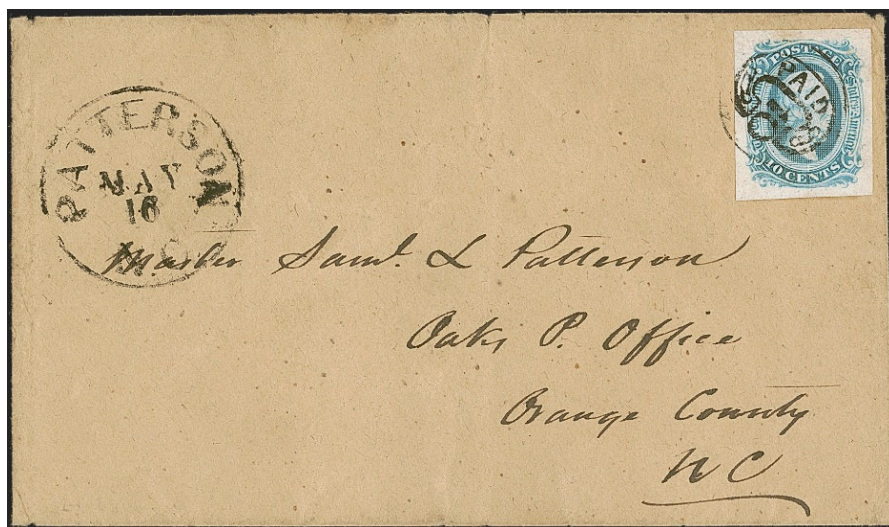 PATTERSON
MAY
16
N.C.
POSTAGE
PAID
10 CENTS
Master Saml. L Patterson
Oaks P. Office
Orange County
NC